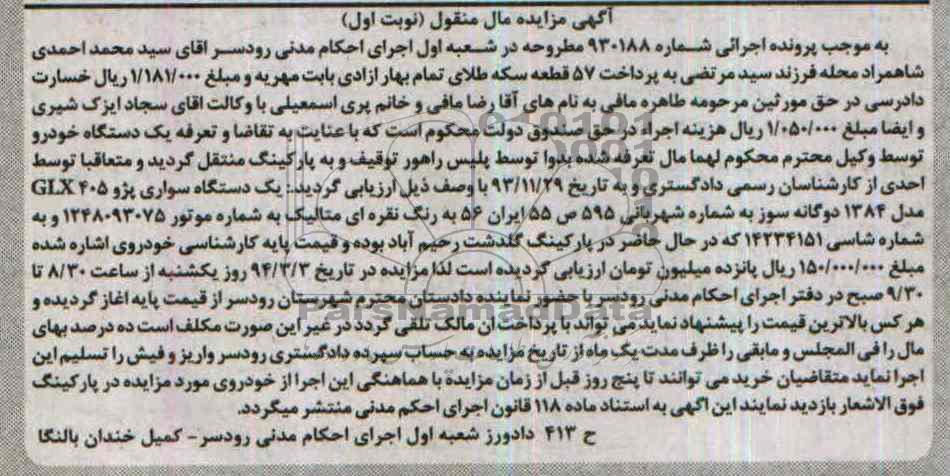 آگهی مزایده مال منقول (نوبت اول)
به موجب پرونده اجرائی شماره ۹۳۰۱۸۸ مطروحه در شعبه اول اجرای احکام مدنی رودسر اقای سید محمد احمدی
شاهمراد محله فرزند سید مرتضی به پرداخت ۵۷ قطعه سکه طلای تمام بهار ازادی بابت مهریه و مبلغ ۱/۱۸۱/۰۰۰ ریال خسارت
دادرسی در حق مورثین مرحومه طاهره مافی به نام های آقا رضا مافی و خانم پری اسمعیلی با وکالت اقای سجاد ایزک شیری
و ایضا مبلغ ۱/۰۵۰/۰۰۰ ریال هزینه اجراء در حق صندوق دولت محکوم است که با عنایت به تقاضا و تعرفه یک دستگاه خودرو
توسط وکیل محترم محکوم لهما مال تعرفه شده بدوا توسط پلیس راهور توقیف و به پارکینگ منتقل گردید و متعاقبا توسط
احدی از کارشناسان رسمی دادگستری و به تاریخ ۹۳/۱۱/۲۹ با وصف ذیل ارزیابی گردید.: یک دستگاه سواری پژو ۴۰۵ GLX
مدل ۱۳۸۴ دوگانه سوز به شماره شهربانی ۵۹۵ ص ۵۵ ایران ۵۶ به رنگ نقره ای متالیک به شماره موتور ۱۲۴۸۰۹۳۰۷۵ و به
شماره شاسی ۱۴۲۳۴۱۵۱ که در حال حاضر در پارکینگ گلدشت رحیم آباد بوده و قیمت پایه کارشناسی خودروی اشاره شده
مبلغ ۱۵۰/۰۰۰/۰۰۰ ریال پانزده میلیون تومان ارزیابی گردیده است لذا مزایده در تاریخ ۹۴/۳/۳ روز یکشنبه از ساعت ۸/۳۰ تا
۹/۳۰ صبح در دفتر اجرای احکام مدنی رودسر با حضور نماینده دادستان محترم شهرستان رودسر از قیمت پایه اغاز گردیده و
هر کس بالاترین قیمت را پیشنهاد نماید می تواند با پرداخت ان مالک تلقی گردد در غیر این صورت مکلف است ده درصد بهای
مال را فی المجلس و مابقی را ظرف مدت یک ماه از تاریخ مزایده به حساب سپرده دادگستری رودسر واریز و فیش را تسلیم این
اجرا نماید متقاضیان خرید می توانند تا پنج روز قبل از زمان مزایده با هماهنگی این اجرا از خودروی مورد مزایده در پارکینگ
فوق الاشعار بازدید نمایند این اگهی به استناد ماده ۱۱۸ قانون اجرای احکم مدنی منتشر میگردد.
ح ۴۱۳ دادورز شعبه اول اجرای احکام مدنی رودسر- کمیل خندان بالنگا
ParsNamadData